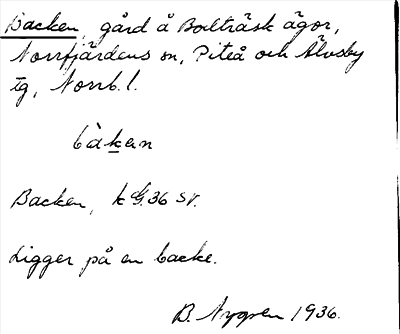 Backen, gård å Bodträsk ägor,
Norrfjärdens sn, Piteå och Älvsby
tg, Norrb. l.
bàkan
Backen, k 36 sv.
Ligger på en backe.
B. Nygren 1936.